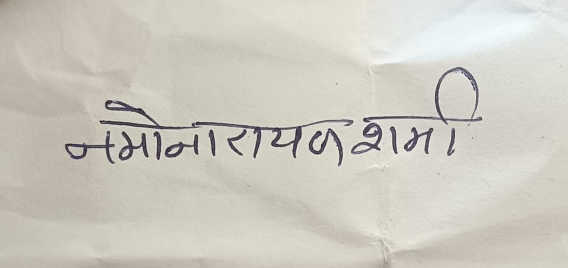 नमोनारायण शर्मा